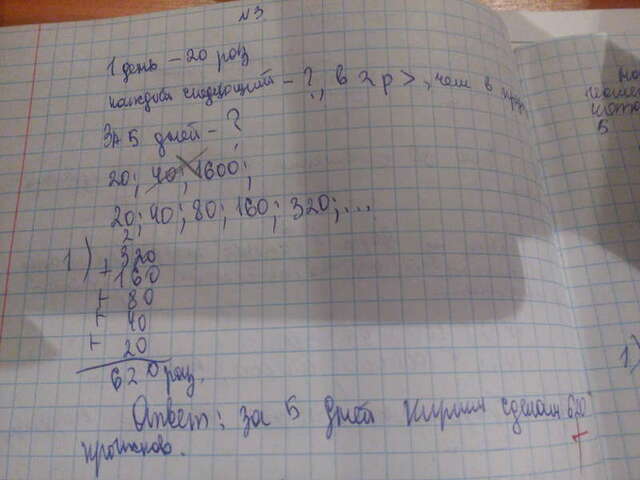 №3
1 день – 20 раз
каждый следующий – ?, в 2 р >, чем в пред
За 5 дней – ?
20; 40; 1600;
20; 40; 80; 160; 320; ...
2
1) 320
+ 160
+ 80
+ 40
+ 20
620 раз.
Ответ: за 5 дней Кирилл сделал 620
прыжков.
1)